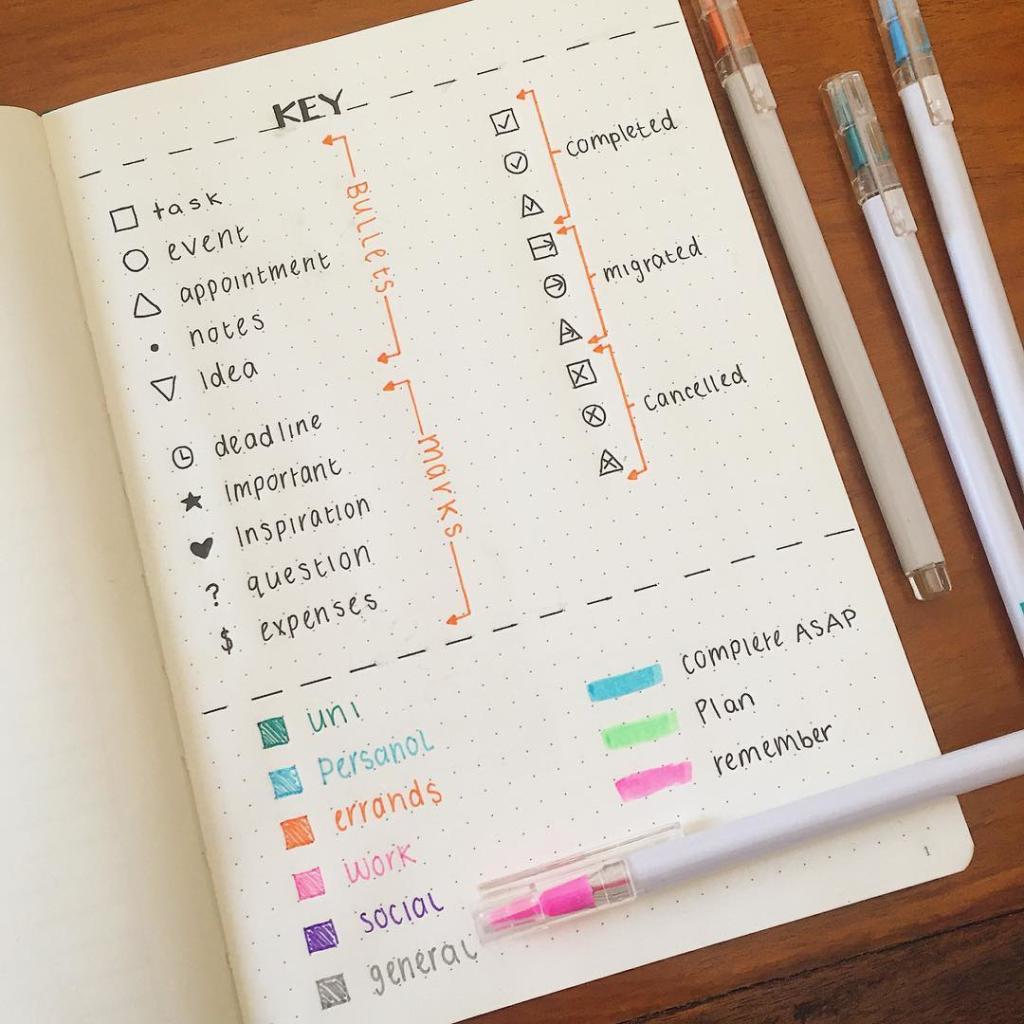 KEY
□ task
○ event
△ appointment
• notes
▽ Idea
Bullets
deadline
★ important
♥ Inspiration
? question
$ expenses
marks
completed
migrated
cancelled
uni
Persanol
errands
work
social
general
complete ASAP
Plan
remember
1